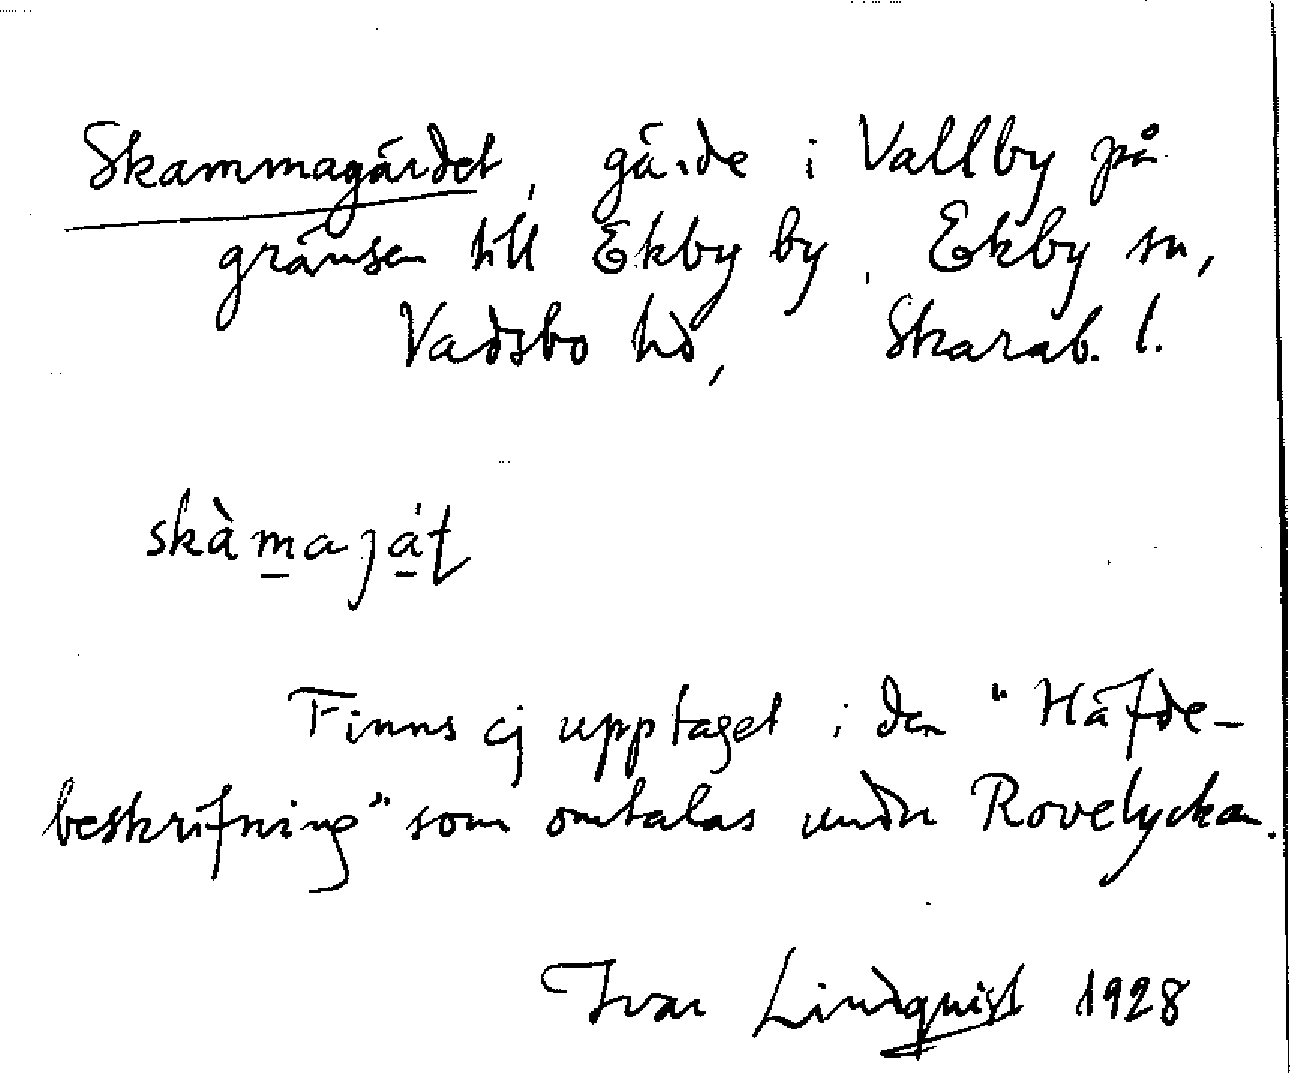 Skammagärdet, gärde i Vallby på
gränsen till Ekby by, Ekby sn,
Vadsbo hd, Skarab. l.
skàmaját
Finns ej upptaget i den "Häfde-
beskrifning" som omtalas under Rovelyckan.
Ivar Lindquist 1928